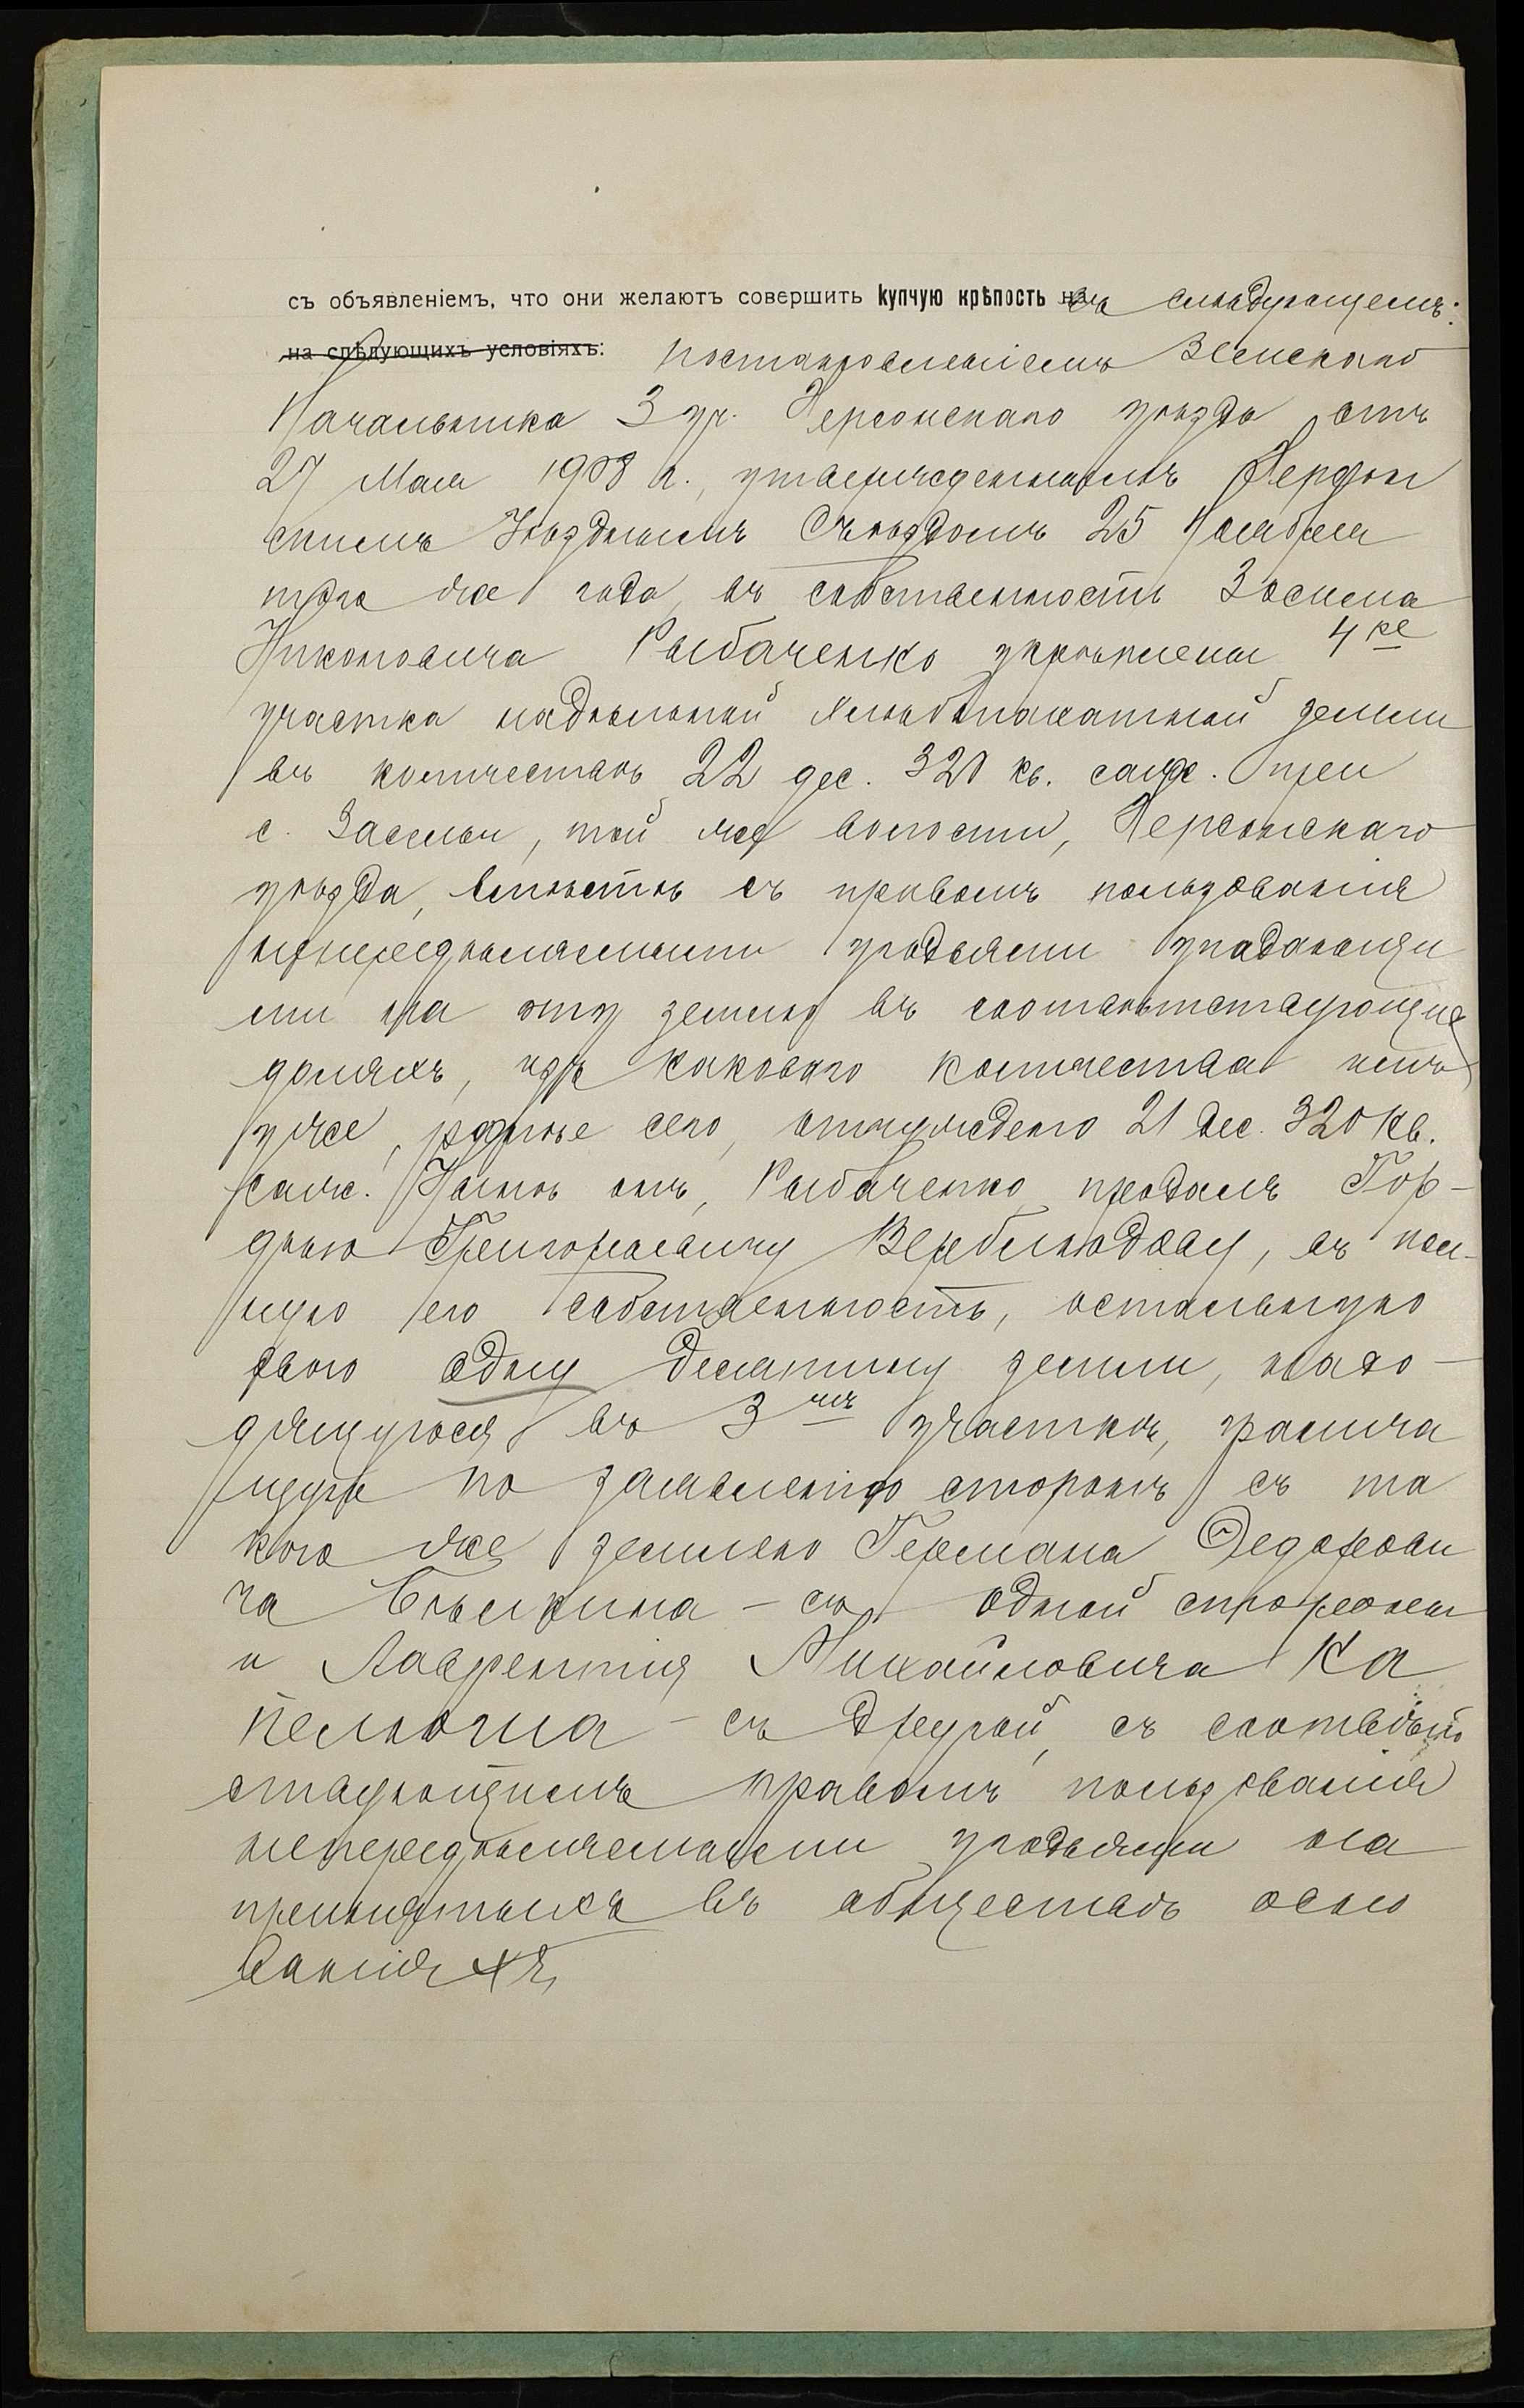 съ объявленіемъ, что они желаютъ совершить купчую крѣпость въ слѣдующемъ:
на слѣдующихъ условіяхъ: Постановленіемъ Земскаго
Начальника 3 уч. Херсонскаго уѣзда отъ
27 Мая 1908 г., утвержденнымъ Херсон
скимъ Уѣзднымъ Съѣздомъ 25 Ноября
того же года, въ собственность Зосима
Никоновича Рыбаченко укрѣплены 4ре
участка надѣльной хлѣбопахатной земли
въ количествѣ 22 дес. 320 кв. саж. при
с. Засельи, той же волости, Херсонскаго
уѣзда, вмѣстѣ съ правомъ пользованія
непередѣляемыми угодьями упадающи
ми на эту землю въ соотвѣтствующихъ
доляхъ, изъ каковаго количества имъ
уже, ранѣе сего, отчуждено 21 дес. 320 кв.
саж. Нынѣ онъ, Рыбаченко продалъ Гор-
дѣю Григорьевичу Верблюдову, въ пол-
ную его собственность, остальную
свою одну десятину земли, нахо-
дящуюся въ 3мъ участкѣ, гранича
щую по заявленію сторонъ съ та
кою же землею Германа Федорови
ча Бѣлкина - съ одной стороны
и Лаврентія Михайловича Ка
пельюча - съ другой, съ соотвѣт
ствующимъ правомъ пользованія
непередѣляемыми угодьями на
принятыхъ въ обществѣ осно
ваніяхъ,